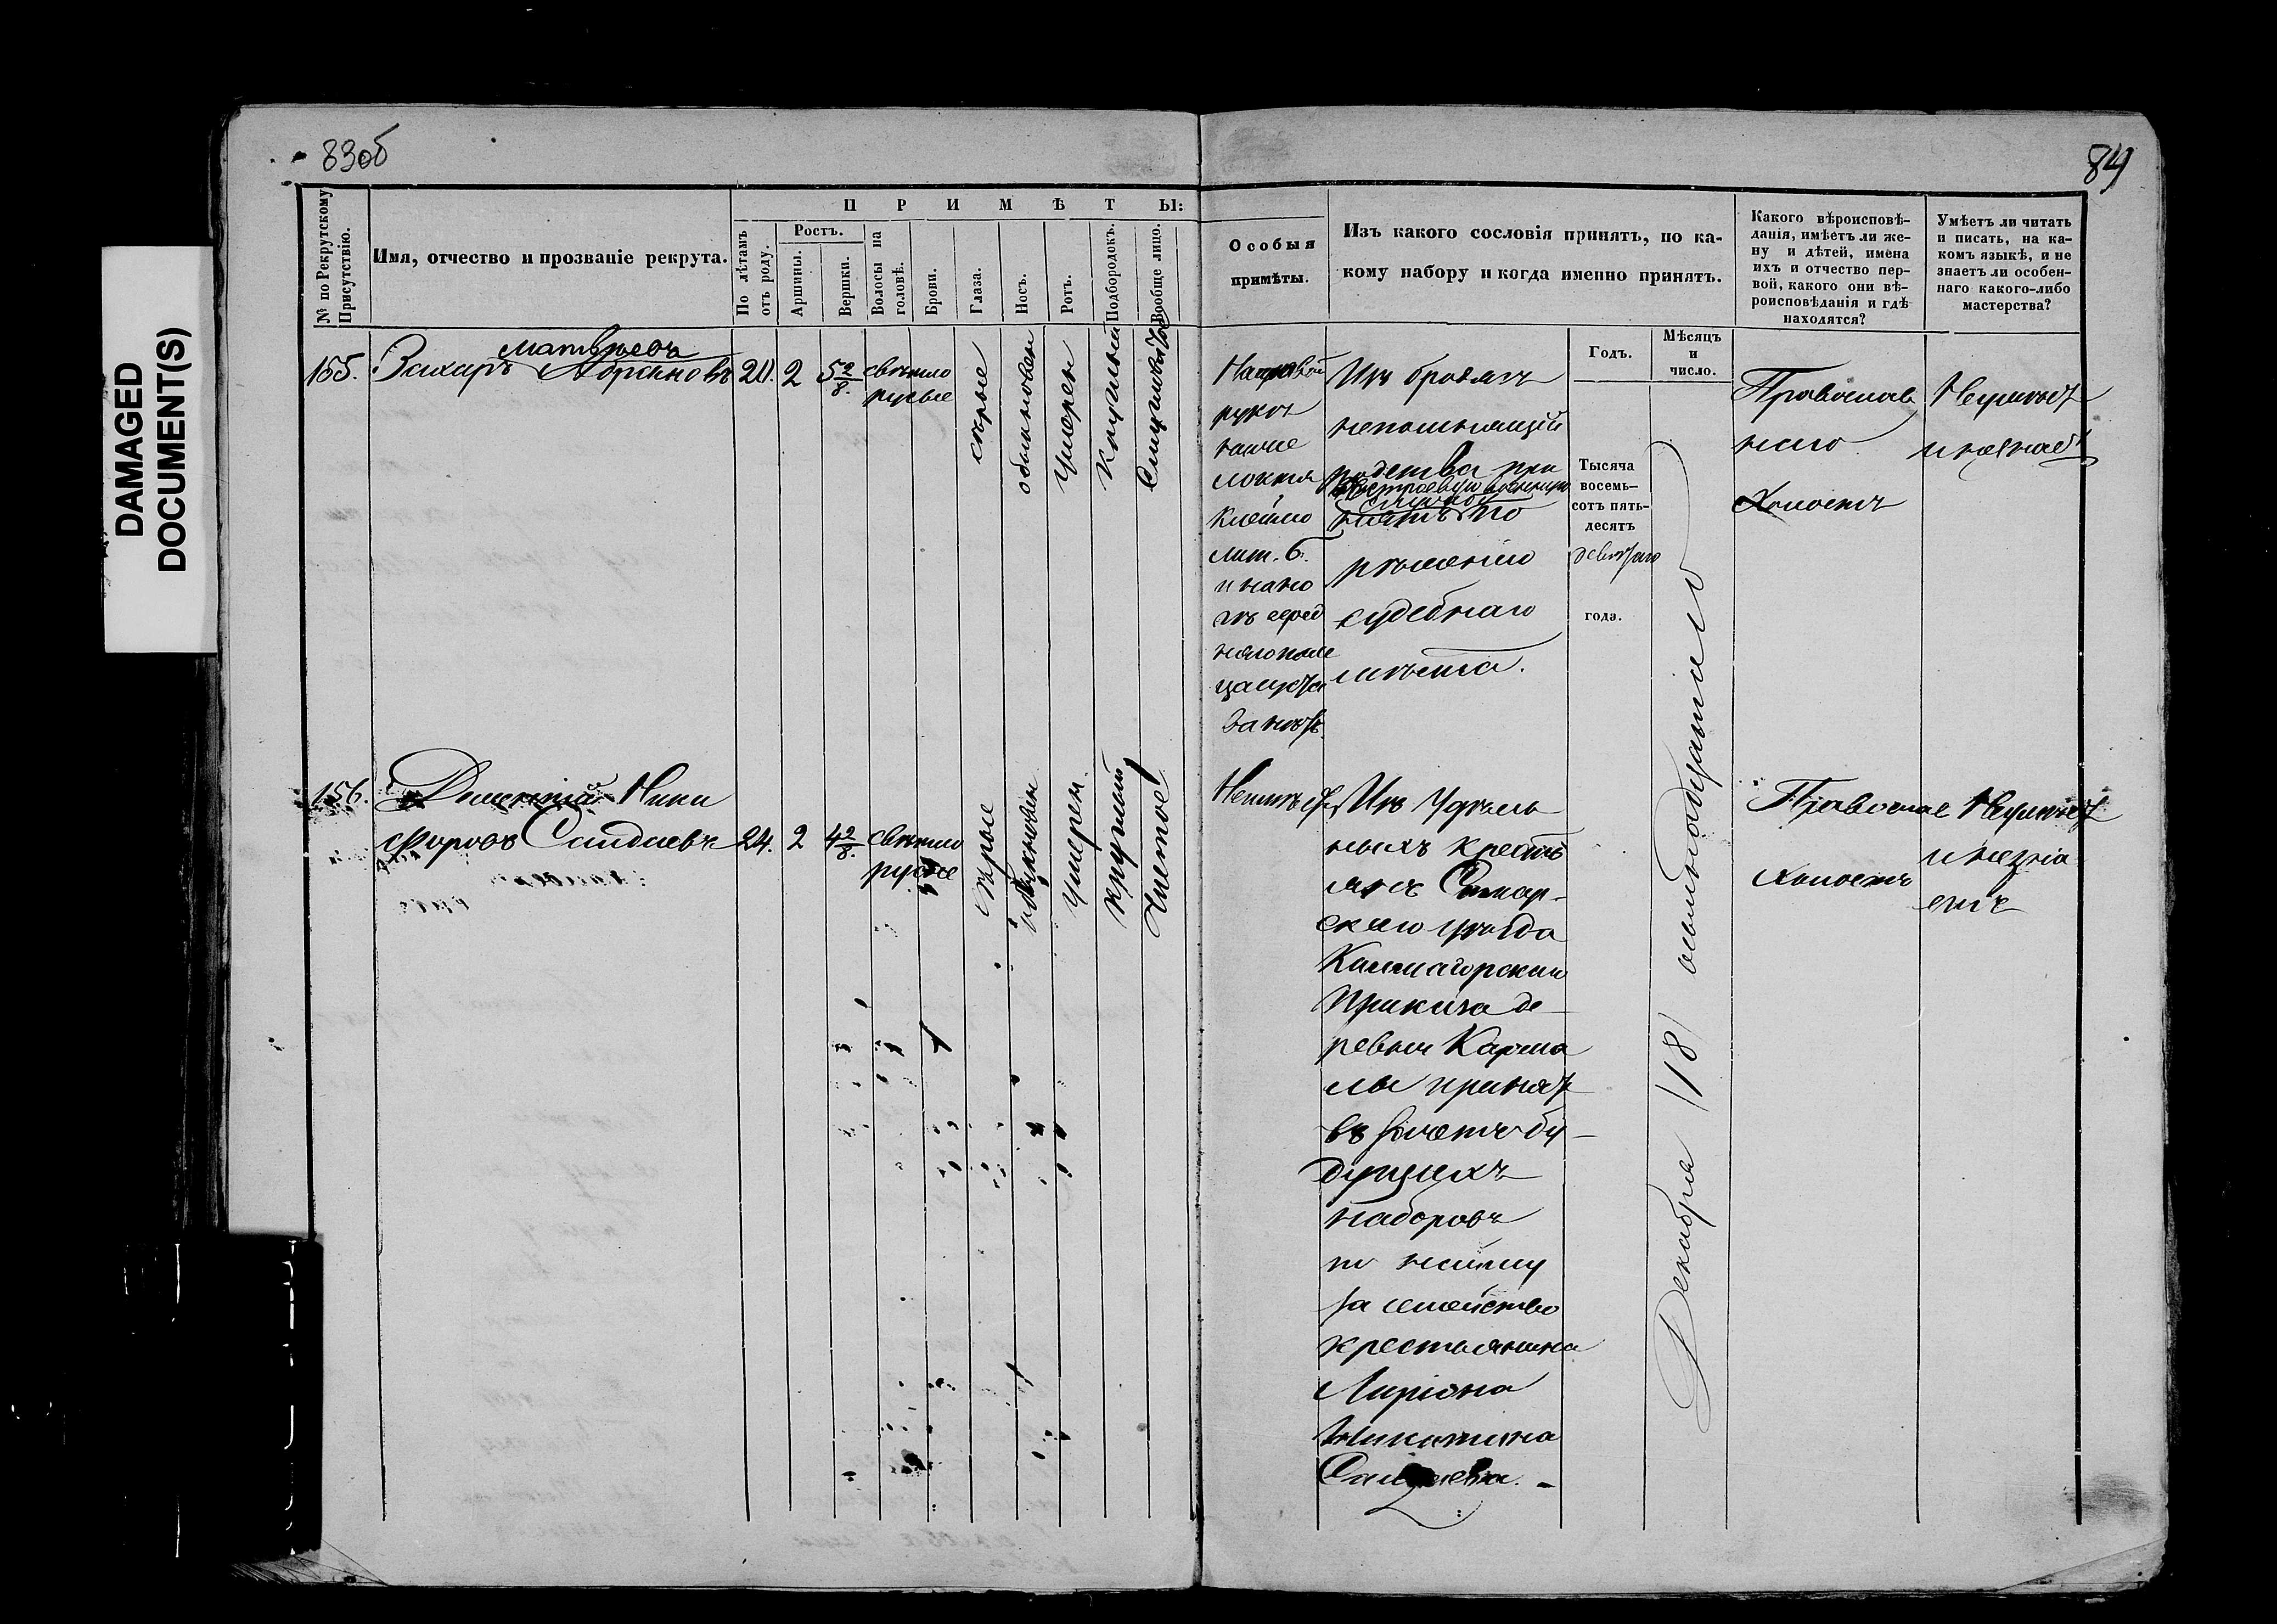 DAMAGED
DOCUMENT(S)
83об
84
№ по Рекрутскому
Присутствію.
Имя, отчество и прозваніе рекрута.
ПРИМѢТЫ:
По лѣтамъ
отъ роду.
Ростъ.
Аршины.
Вершки.
Волосы на
головѣ.
Брови.
Глаза.
Носъ.
Ротъ.
Подбородокъ.
Вообще лицо.
Особыя
примѣты.
Изъ какого сословія принятъ, по ка-
кому набору и когда именно принятъ.
Какого вѣроисповѣ-
данія, имѣетъ ли же-
ну и дѣтей, имена
ихъ и отчество пер-
вой, какого они вѣ-
роисповѣданія и гдѣ
находятся?
Умѣетъ ли читать
и писать, на ка-
комъ языкѣ, и не
знаетъ ли особен-
наго какого-либо
мастерства?
Годъ.
Мѣсяцъ
и
число.
155.
Матвѣевъ
Захаръ Абрамовъ
20.
2
5 2/8.
свѣтло
русые
сѣрые
обыкновен
умерен
круглый
На правой
рукѣ
ниже
локтя
клеймо
лит. Б.
Изъ бродягъ
непомнящій
родства при
по
рѣшенію
судебнаго
мѣста.
Тысяча
восемь-
сотъ пять-
десятъ
девятаго
года.
Декабря 18 восемнадцатаго
Православ
наго
Холостъ
Неумѣетъ
и незнаетъ
156.
Дементій Ники
форовъ
24.
2
4 2/8.
свѣтло
русые
сѣрые
обыкновен
умерен.
круглый
Чистое
Неимѣетъ
Изъ Удѣль
ныхъ кресть
янъ Самар-
скаго уѣзда
приказа де
ревни Карма
лы принятъ
въ зачетъ бу-
дущихъ
наборовъ
по найму
за семейство
крестьянина
Ларіона
Никитина
Православ
Холостъ
Неумѣетъ
и незна
етъ